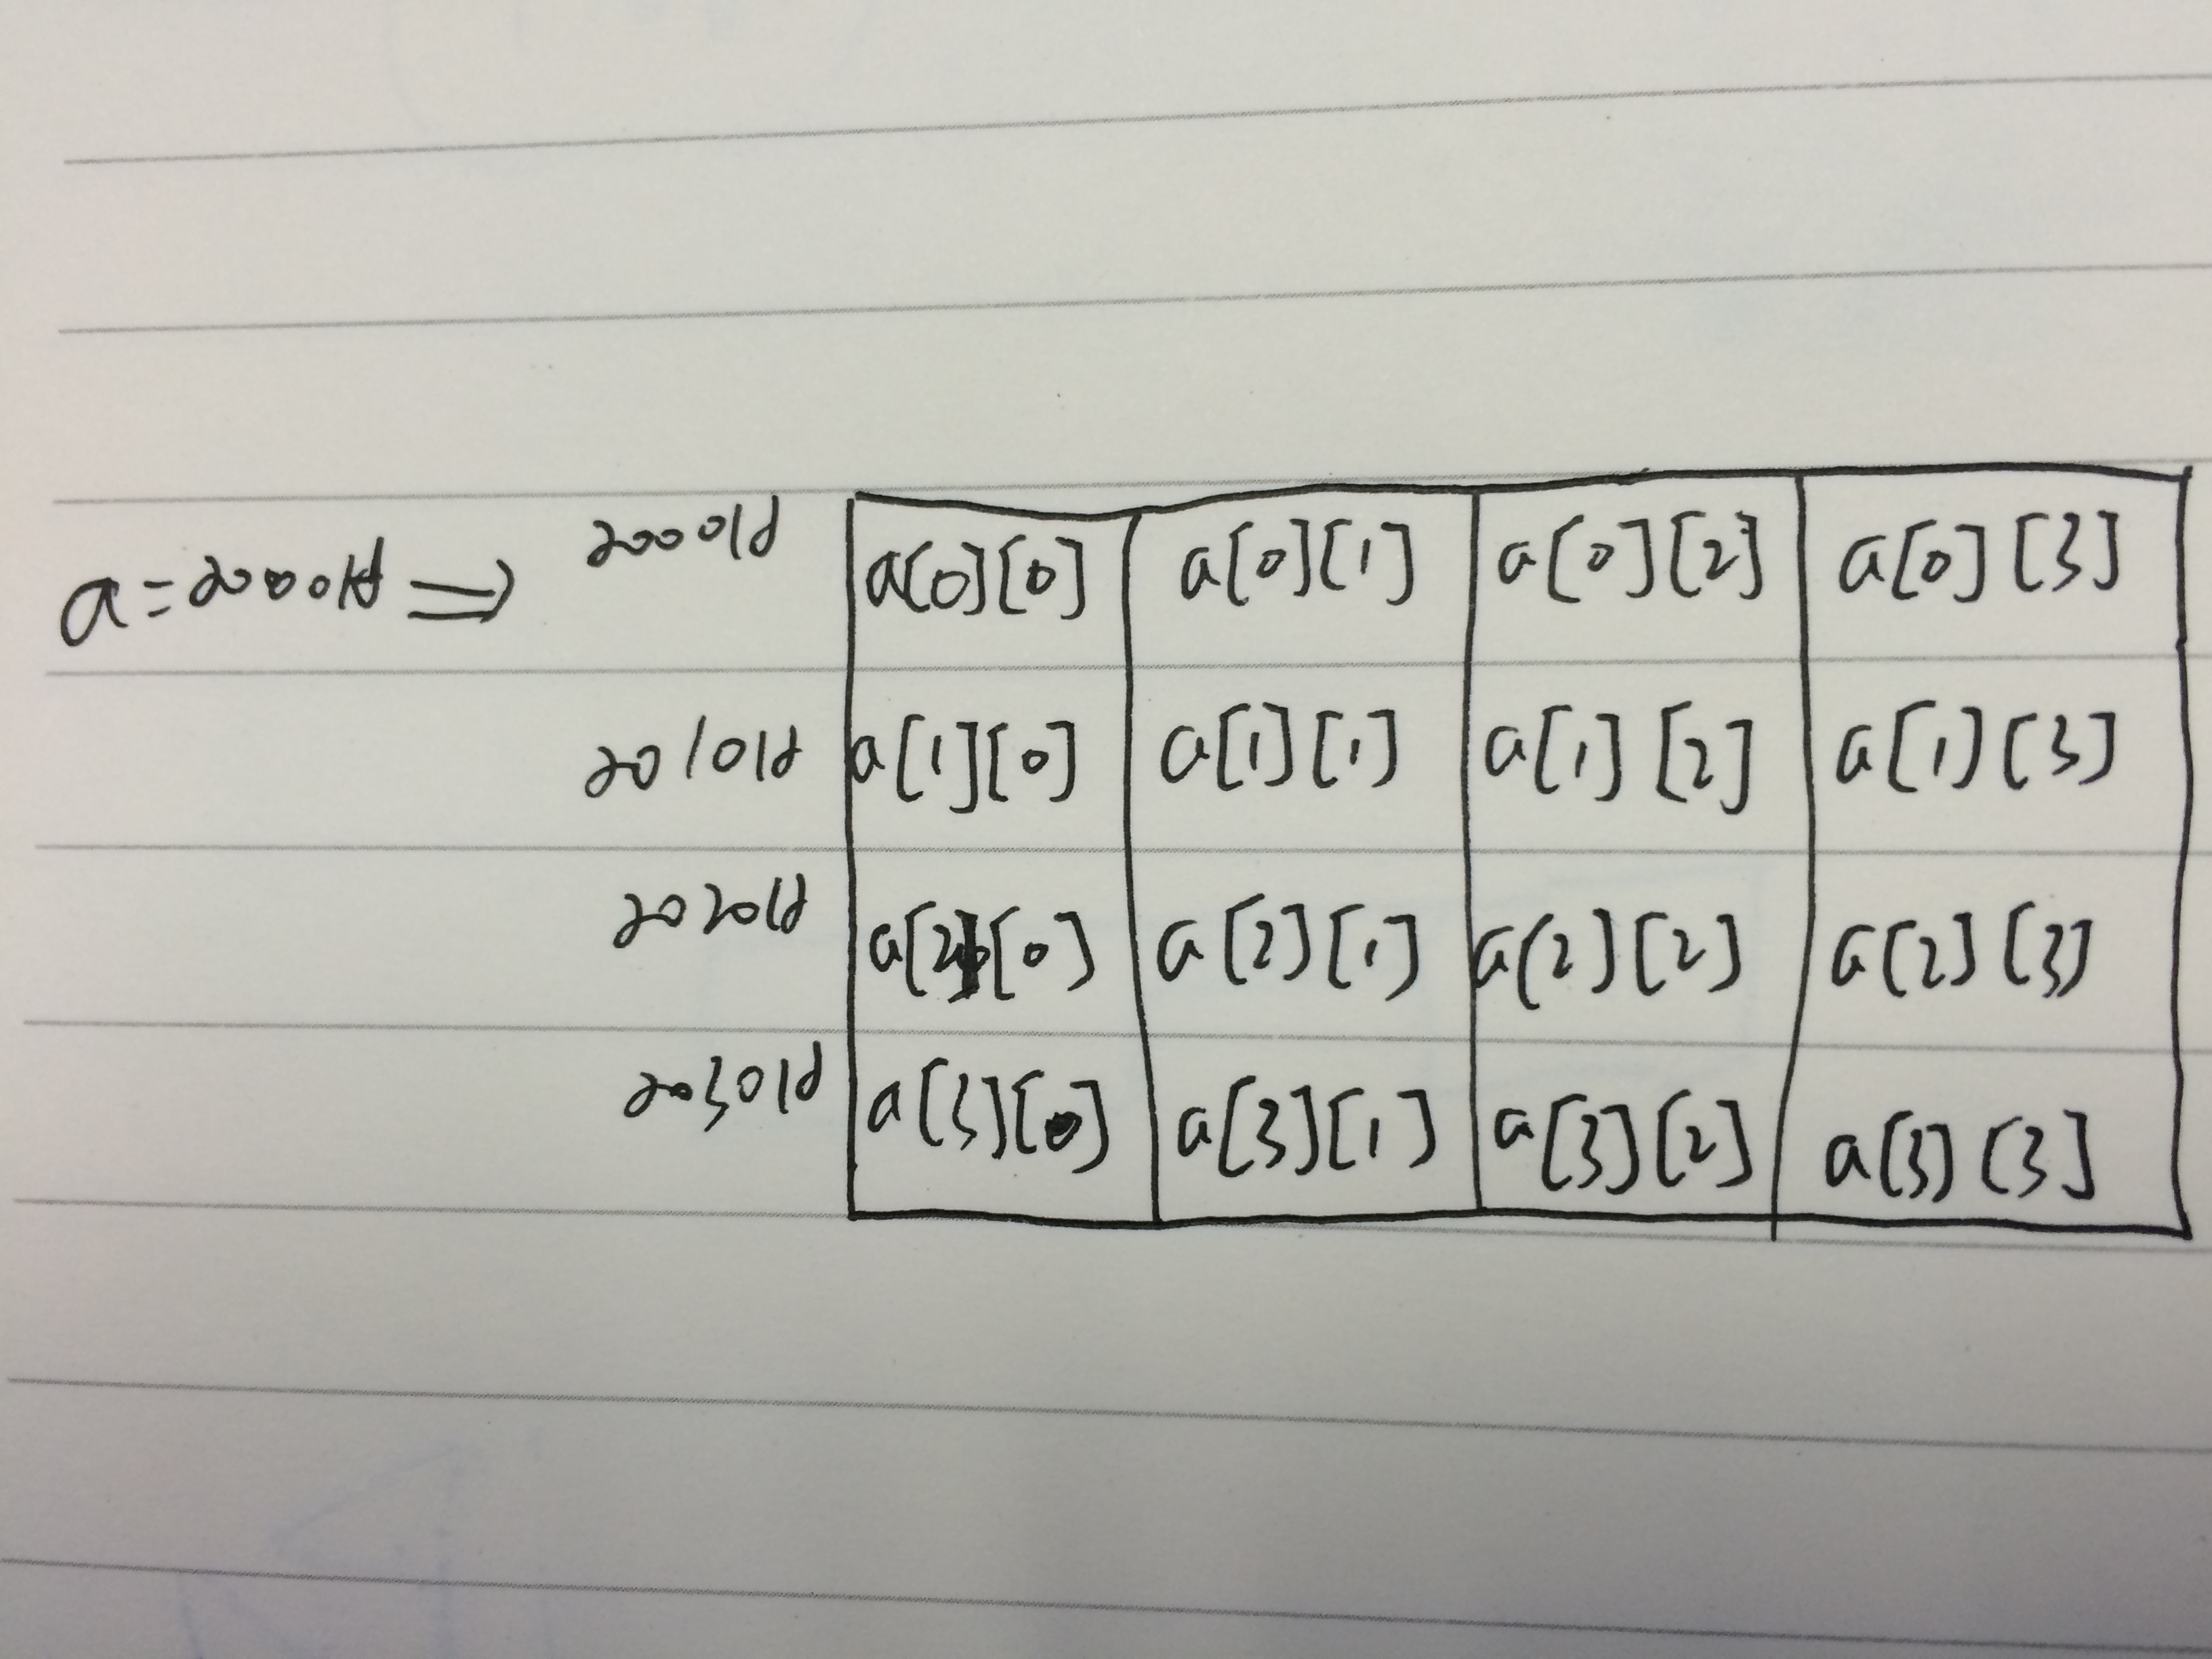 a=2000ld ⇒ 2000ld a[0][0] a[0][1] a[0][2] a[0][3]
2010ld a[1][0] a[1][1] a[1][2] a[1][3]
2020ld a[2][0] a[2][1] a[2][2] a[2][3]
2030ld a[3][0] a[3][1] a[3][2] a[3][3]